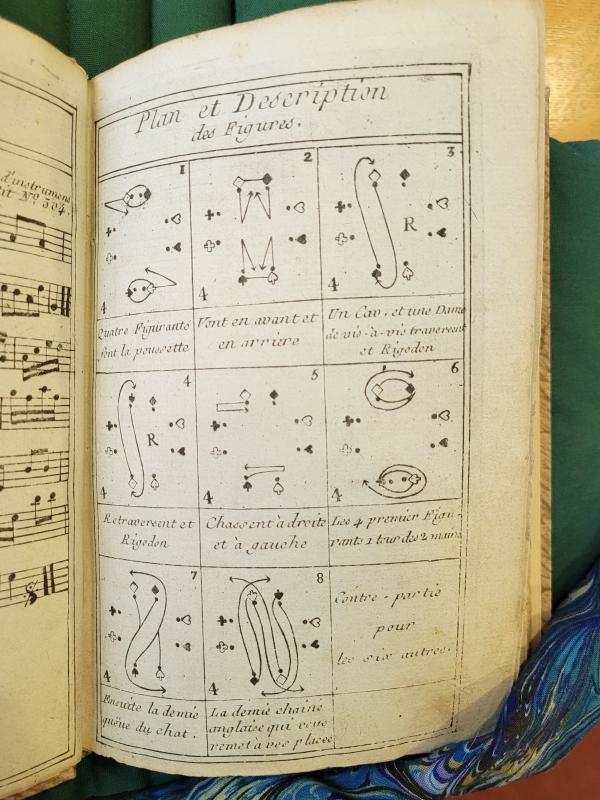 d'instrumens
tit N.º 504.
Plan et Description
des Figures.
1
4
Quatre Figurants
font la poussette
2
Vont en avant et
en arriere
3
R
4
Un Cav. et une Dame
de vis-à-vis traversent
et Rigodon
4
R
4
Retraversent et
Rigodon
5
Chassent à droite
et à gauche
6
4
Les 4 premier Figu-
rants 1 tour des 2 mains
7
4
Ensuite la demie
queue du chat.
8
4
La demie chaine
anglaise qui vous
remet à vos places
Contre-partie
pour
les six autres.